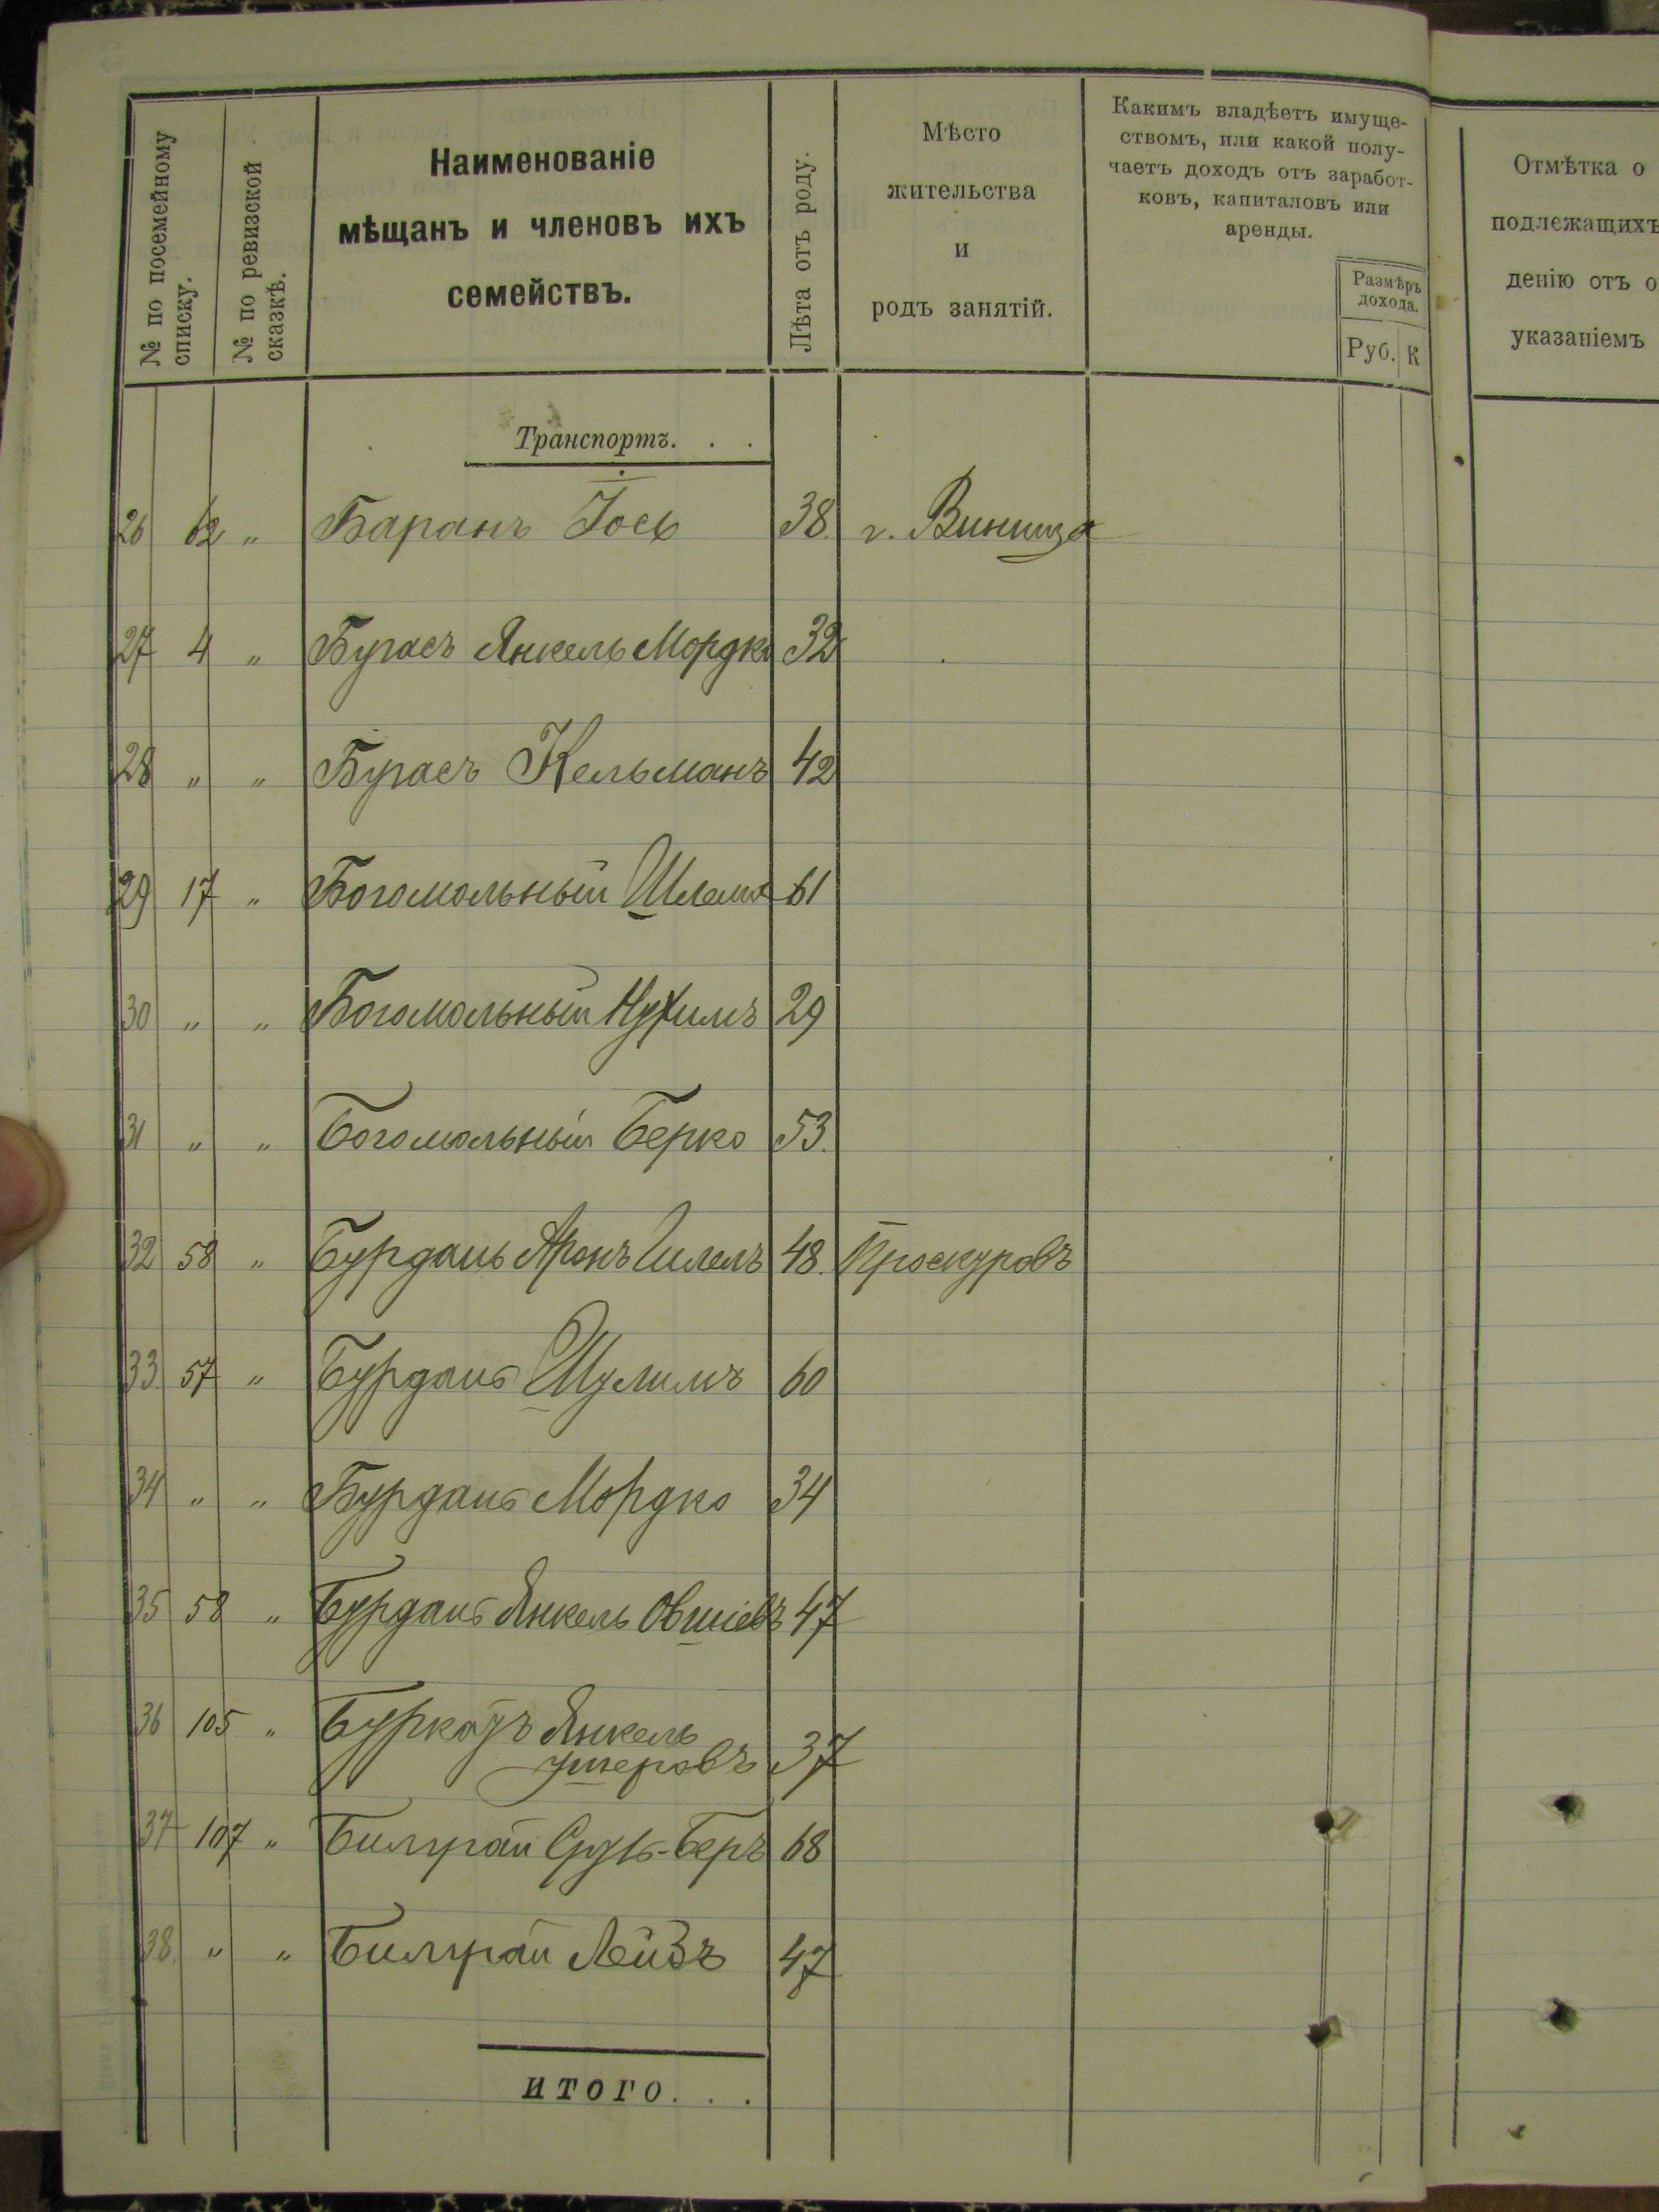 № по посемейному
списку.
№ по ревизской
сказкѣ.
Наименованіе
мѣщанъ и членовъ ихъ
семействъ.
Лѣта отъ роду.
Мѣсто
жительства
и
родъ занятій.
Какимъ владѣетъ имуще-
ствомъ, или какой полу-
чаетъ доходъ отъ заработ-
ковъ, капиталовъ или
аренды.
Размѣръ
дохода.
Руб. К
Отмѣтка о
подлежащихъ
денію отъ о
указаніемъ
Транспортъ. . .
26 62 „ Баранъ Іось 38. г. Виница
27 4 „ Бугасъ Янкель Мордко 32
28 „ „ Бугасъ Кельманъ 42
29 17 „ Богомольный Шлема 61
30 „ „ Богомольный Нухимъ 29
31 „ „ Богомольный Берко 53.
32 58 „ Бурданъ Аронъ Шлемъ 48. Проскуровъ
33. 57 „ Бурданъ Шулимъ 60
34 „ „ Бурданъ Мордко 34
35 58 „ Бурданъ Янкель Овшіевъ 47
36 105 „ Буркатъ Янкель
Ушеровъ 37
37 107 „ Билграй Сруль-Беръ 68
38. „ „ Билграй Лейзъ 47
итого. . .